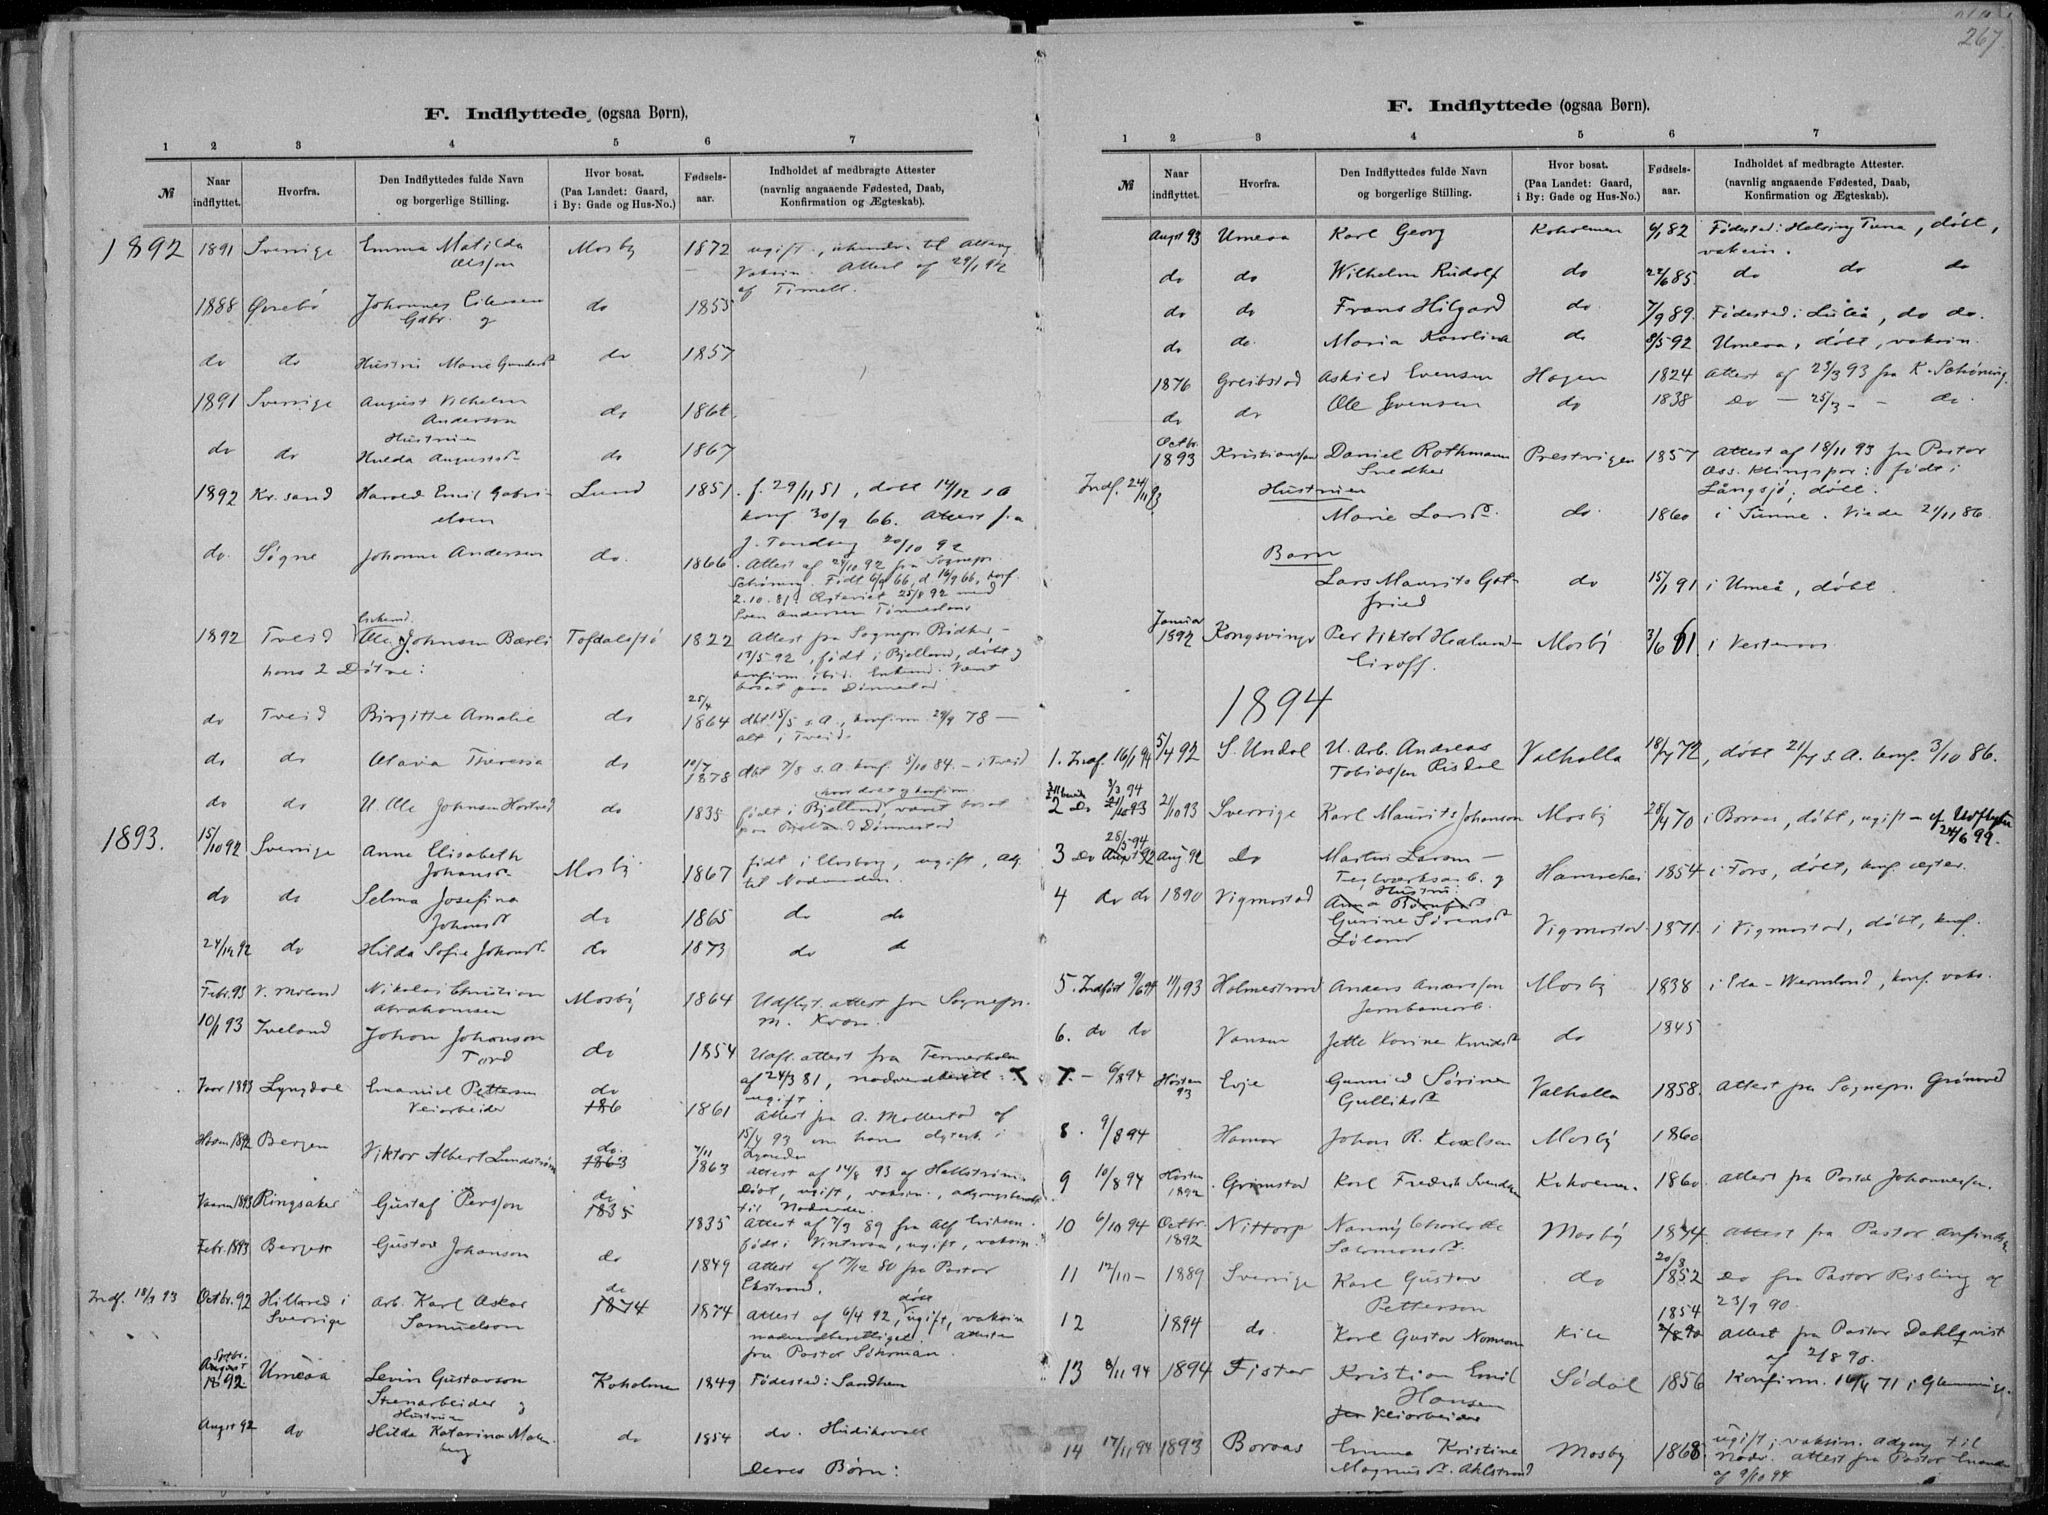 F. Indflyttede (ogsaa Børn),
1 2 3 4 5 6 7
№ Naar indflyttet. Hvorfra. Den Indflyttedes fulde Navn og borgerlige Stilling. Hvor bosat. (Paa Landet: Gaard, i By: Gade og Hus-No.) Fødsels-aar. Indholdet af medbragte Attester (navnlig angaaende Fødested, Daab, Konfirmation og Ægteskab).
1892 1891 Sverrige Emma Matilda Mosby 1872 ugift,
Olsson Attest af
1888 Øvrebø Johannes do 1855
og
do do Hustru Marie do 1857
1891 Sverrige August Vilhelm do
Anderson
Hustruen
do do Hulda Augusta do 1867
1892 Kr.sand Harald Emil Gabri- Lund 1851. f. 29/11 51, døbt 14/12 s A
elsen konf 30/9 66. Attest fra
do. Søgne Johanne Andersen do. 1866. Attest af 24/10 92 fra Sognepr.
1892 Tveid Ole Johnsen Tofdalsstø 1822 Attest fra Sognepr
hans 2 Døtre: 13/5 92, født i Bjelland, døbt og
25/4
do Tveid Birgitte Amalie do 1864 dbt 15/5 s.A., konfirm. 29/9 78 –
alt i Tveid.
do do Olava Theresia do 10/7 1878 dbt 7/8 s.A. konf. 5/10 84. – i Tveid
do do U. Ole Johnsen do 1835 født i Bjelland, været bosat
1893. 15/10 92 Sverrige Anne Elisabeth Mosby 1867 født i Elfsborg, ugift, adg.
til Nadverden.
do do Selma Josefina do 1865 do do
24/12 92 do Hilda Sofie do 1873 do
Febr. 93 V. Moland Nikolai Christian Mosby 1864 Udflyt. attest fra Sognepr.
Abrahamsen M.
10/1 93 Iveland Johan Johanson do 1854 Udfl. attest fra
af 24/3 81,
ugift.
Vaar 1893 Lyngdal Emanuel Petterson do 186 1861 Attest fra A. af
Veiarbeider 15/4 93 om hans
Høsten 1892 Bergen Viktor Albert Lundstrøm do. 1863 7/11 1863 Attest af 14/8 93 af Hallstrøm.
Døbt, ugift, vaksin.,
til Nadverden.
Vaaren 1893 Ringsaker Gustaf Persson do 1835 1835 Attest af 7/3 89 fra Alf Eriksen.
født i Vintrosa, ugift, vaksin.
Febr. 1893 Bergen Gustav Johanson do 1849 Attest af 17/12 80 fra Pastor
Ekstrand.
Indf. 18/9 93 Octbr. 92 Hillared i Arb. Karl Askar do 1874 1874 Attest af 6/4 92, døbt ugift, vaksin
Sverrige Samuelson nadverdberettiget. Attesten
fra Pastor Söhrman.
Septbr. August 1892 Umeaa Levin Gustavson Koholmen 1849 Fødested: Sandhem
Stenarbeider og
Hustruen
Augst 92 do Hilda Katarina do 1854 do. Hudiksvall
Deres Børn:
267.
F. Indflyttede (ogsaa Børn).
1 2 3 4 5 6 7
№ Naar indflyttet. Hvorfra. Den Indflyttedes fulde Navn og borgerlige Stilling. Hvor bosat. (Paa Landet: Gaard, i By: Gade og Hus-No.) Fødsels-aar. Indholdet af medbragte Attester. (navnlig angaaende Fødested, Daab, Konfirmation og Ægteskab).
Augst 93 Umeaa Karl Georg Koholmen 6/1 82 Fødested: Helsing Tuna, døbt,
vaksin.
do do Wilhelm Rudolf do 22/6 85. do do do
do do Frans Hilgard do. 7/9 89. Fødested: Luleå, do do.
do do. Maria Karolina do 8/5 92 Umeaa, døbt, vaksin.
1876 Greibstad Askild Evensen Hagen 1824 Attest af 23/3 93 fra K. Schøning.
do do Ole Svensen do 1838 Do – 25/3 – – do.
Octbr. 1893 Kristianssand Daniel Rothmann Prestvigen 1857 Attest af 18/11 93 fra Pastor
Snedker Ass. Klingspor: født i
Indf. 24/11 93 Hustruen Långsjö, døbt.
Marie do. 1860 i Sunne. Viede 21/11 86.
Børn
Lars Maurits Got- do 15/1 91 i Umeå, døbt.
fried
Januar 1892 Kongsvinger Per Viktor Hedlund- Mosby 3/6 61. i Vesteraas
1894
1. Indf. 16/1 94 5/4 92 S. Undal U. Arb. Andreas Valhalla 18/4 72, døbt 21/4 s.A. konf. 3/10 86.
Tobiassen Risdal
2 Do 21/10 93 Sverrige Karl Maurits Johanson Mosby 28/4 70 i Boraas, døbt, ugift –
24/6 99.
25/5 94
3 Do Aug 92 Do Martin Larson – Hamrehei 1854 i Fors, døbt, konf. ægtev.
Teglverksarb. og
Hustru:
4 do do 1890 Vigmostad Vigmostad. 1871. i Vigmostad, døbt, konf.
Gurine
5. Indført 9/6 94 11/1 93 Holmestrand Anders Andersson Mosby 1838 i Eda – Wermland, konf. vaks.
Jernbanearb.
6. do do Vanse Jette Karine do 1845
7. – 6/8 94 Høsten 93 Evje Gunnild Sørine Valhalla 1858. Attest fra Sognepr.
8. 9/8 94 Hamar Johan R. Karlsen Mosby 1860
9 10/8 94 Høsten 1892 Grimstad Karl Fredrik Koholmen 1860. Attest fra Pastor Johannessen.
10 6/10 94 Octbr. 1892 Nittorp Nanny Charlotte Mosby 1874. Attest fra Pastor
20/3
11 12/10 – 1889 Sverrige Karl Gustav do 1852 Do fra Pastor Risling af
Petterson 23/9 90.
1854
12 1894 do. Karl Gustav Norman Kile Attest fra Pastor Dahlqvist
af 2/8 90.
13 8/11 94 1894 Fister Kristian Emil Sødal 1856 Konfirm. 71 i
Hansen
Veiarbeider
14 17/11 94 1893 Boraas Emma Kristine Mosby 1868 ugift, vaksin. Adgang til
Ahlstrand Nadv. attest fra Pastor
af 9/10 94